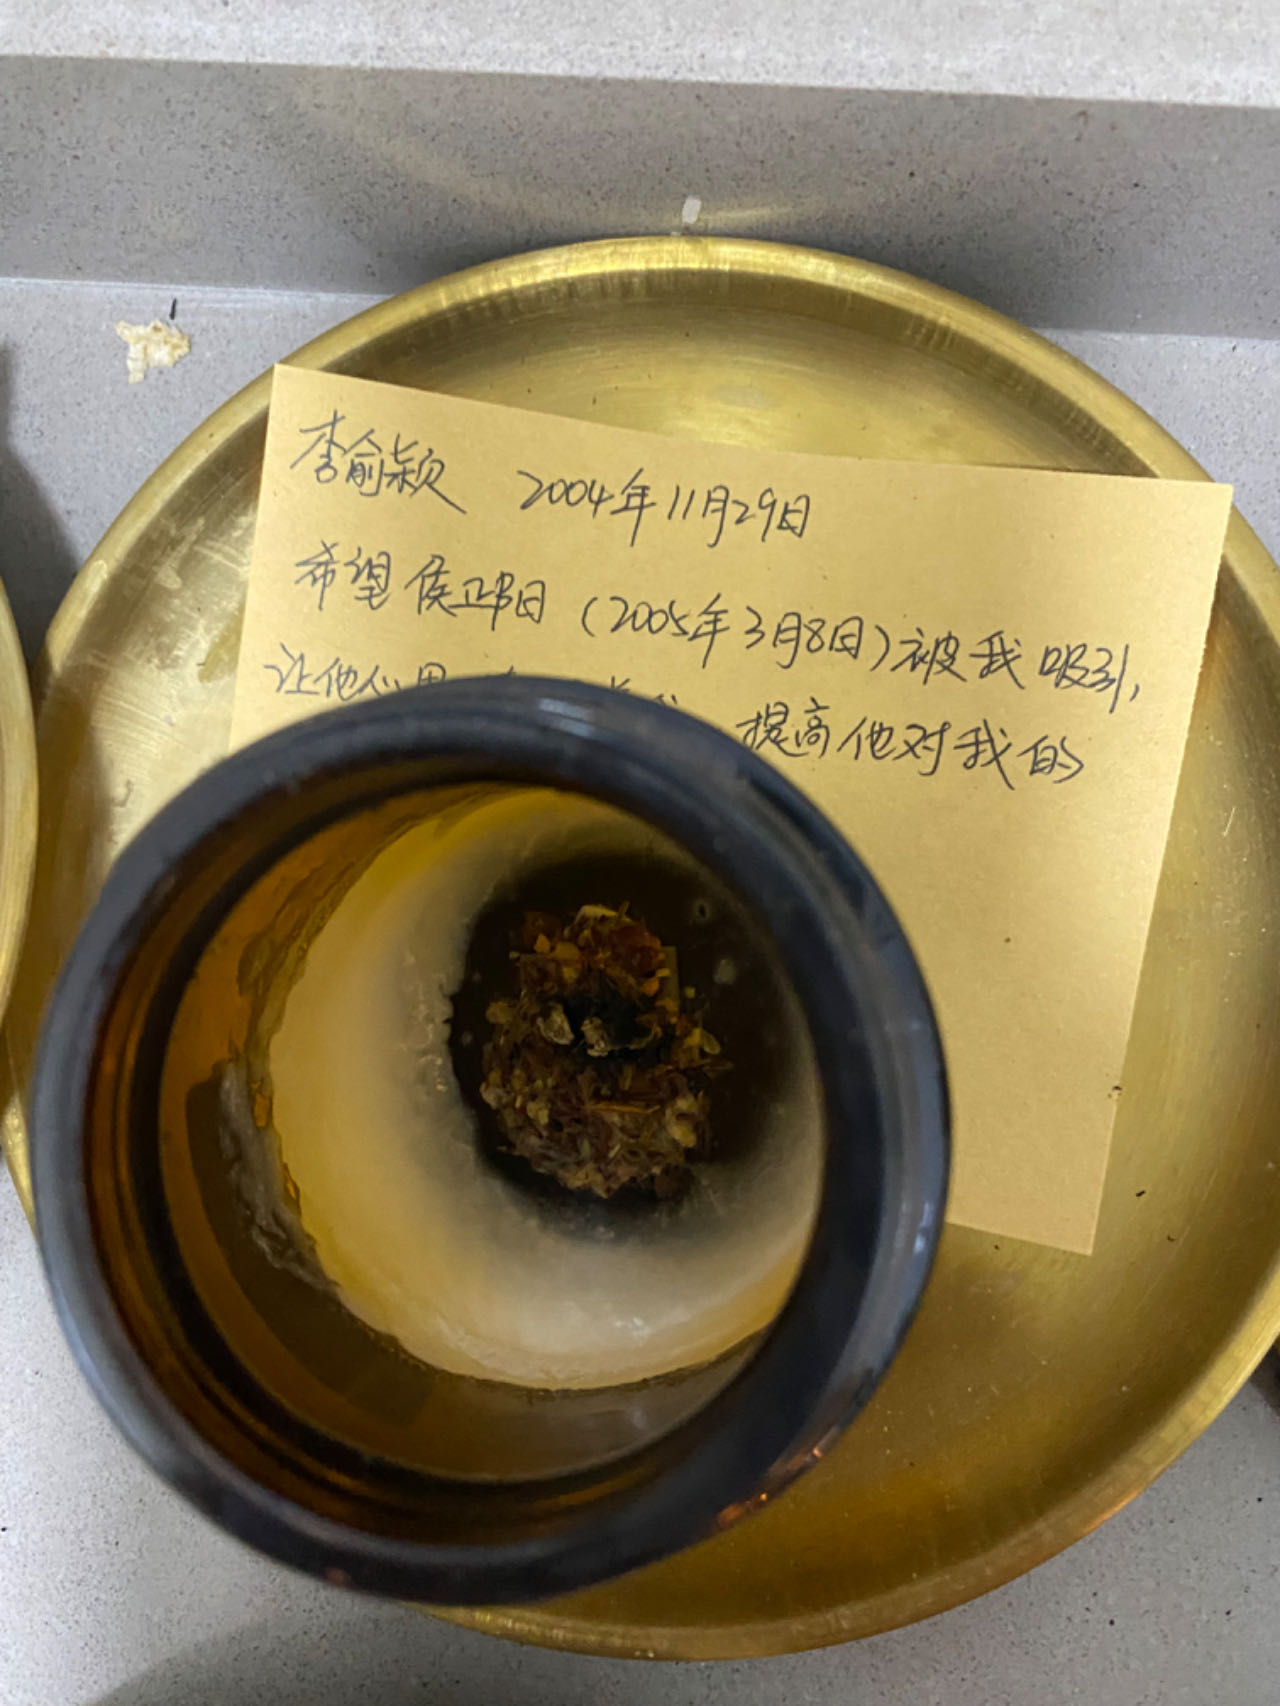 李俞颖 2004年11月29日
希望侯正阳（2005年3月8日）被我吸引，
让他心思 提高他对我的